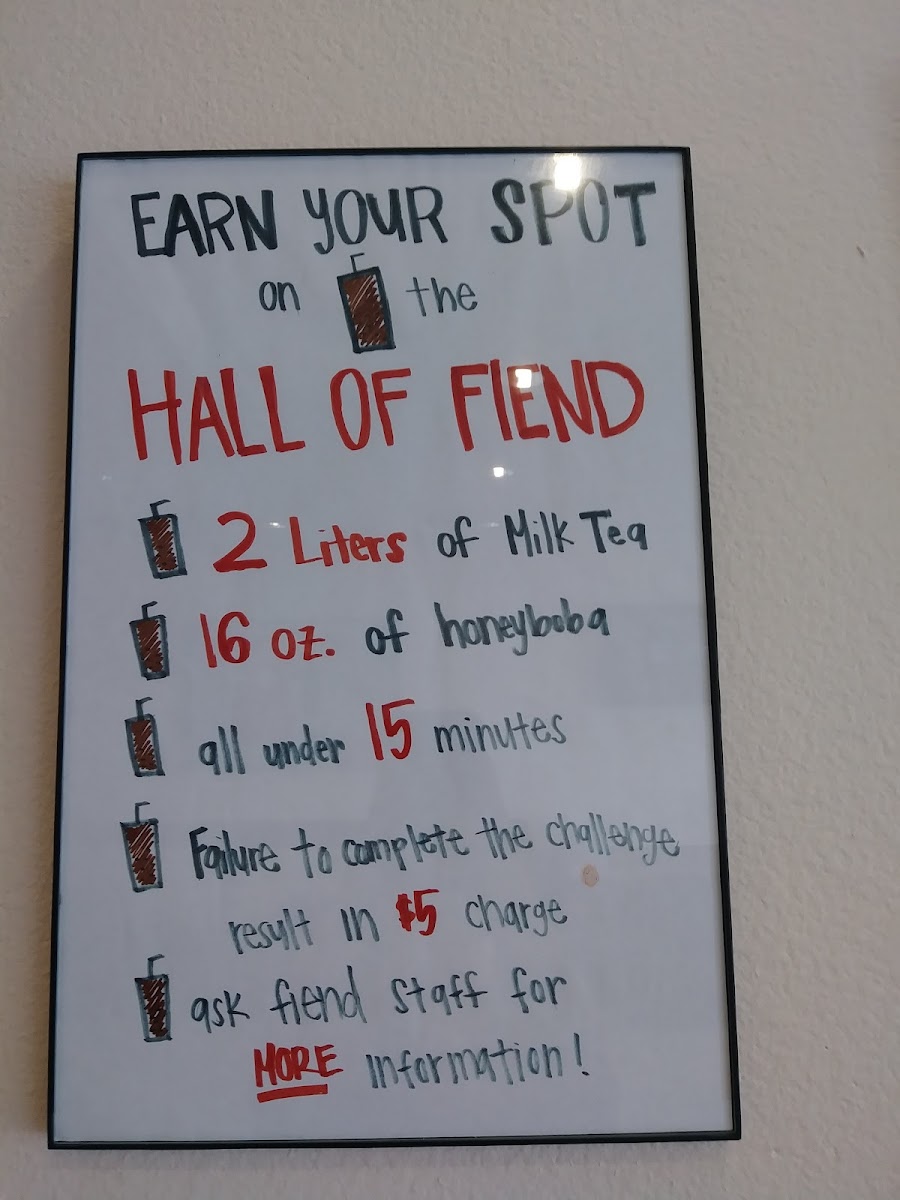 EARN YOUR SPOT
on the
HALL OF FIEND
2 Liters of Milk Tea
16 oz. of honeyboba
all under 15 minutes
Failure to complete the challenge
result in $5 charge
ask fiend staff for
MORE information!